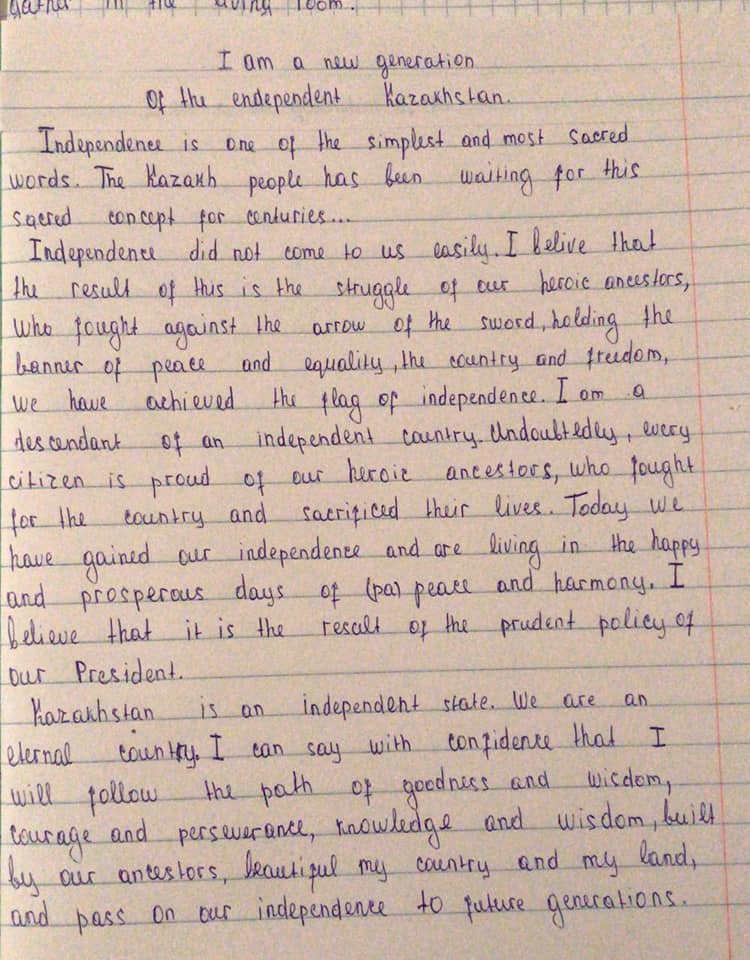 gather in the living room.
I am a new generation
Of the endependent Kazakhstan.
Independence is one of the simplest and most sacred
words. The Kazakh people has been waiting for this
sacred concept for centuries...
Independence did not come to us easily. I belive that
the result of this is the struggle of our heroic ancestors,
who fought against the arrow of the sword, holding the
banner of peace and equality, the country and freedom,
we have achieved the flag of independence. I am a
descendant of an independent country. Undoubtedly, every
citizen is proud of our heroic ancestors, who fought
for the country and sacrificed their lives. Today we
have gained our independence and are living in the happy
and prosperous days of (pa) peace and harmony. I
believe that it is the result of the prudent policy of
our President.
Kazakhstan is an independent state. We are an
eternal country. I can say with confidence that I
will follow the path of goodness and wisdom,
courage and perseverance, knowledge and wisdom, built
by our ancestors, beautiful my country and my land,
and pass on our independence to future generations.